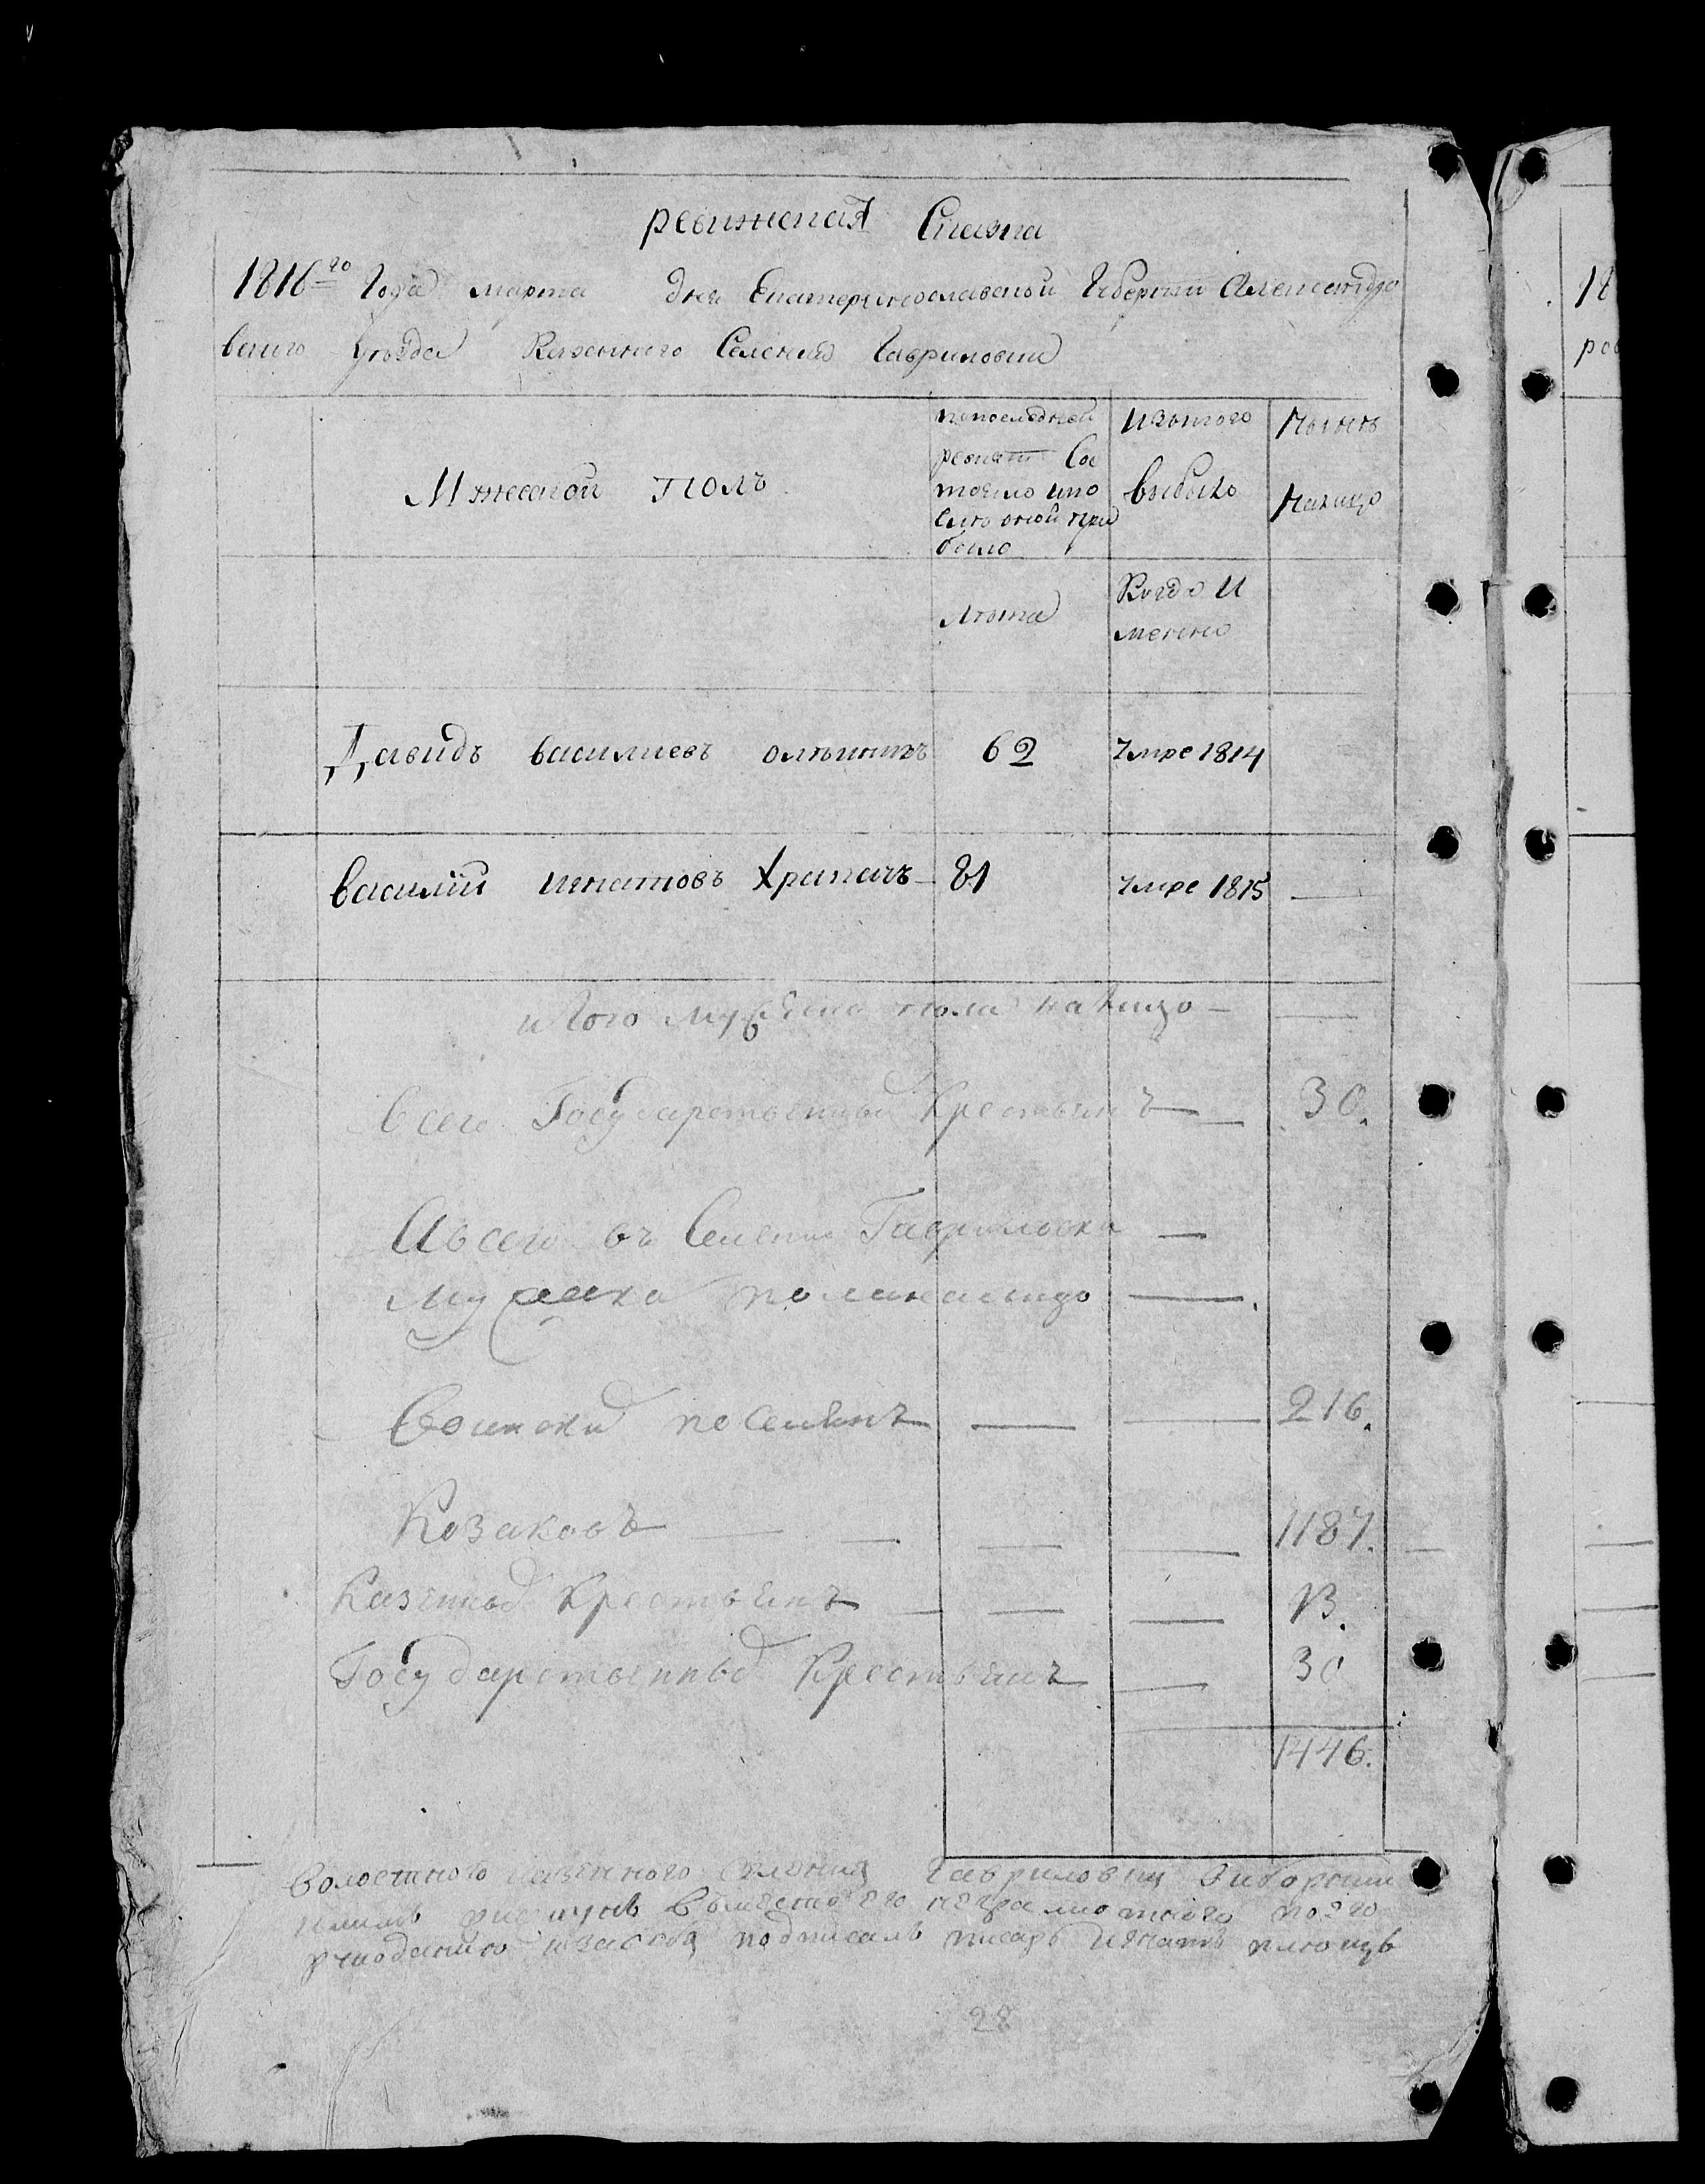 ревижская Сказка
1816го Года марта дня Екатеринославской Губернии Александро
вского уезда Казенного Селения Гавриловки
Мужеской полъ
по последней
ревизии Сос
тояло и по
сле оной при
было
Изътого
выбыло
Ныне
Налицо
Лета
Когда И
менно
Давидъ василиевъ олейникъ 62 Умре 1814
василий игнатовъ Храпачъ 81 Умре 1815
итого Мужеска пола налицо
всего Государственных Крестьянъ 30.
А всего въ Селении Гавриловки
Мужеска пола налицо
Воински поселянъ 216.
Козаковъ 1187.
Казенных Крестьянъ 13.
Государственных Крестьянъ 30
1446.
волостного казенного селения Гавриловки выборный
вместо его неграмотного по его
рукоданию и засебя подписалъ писарь Игнатъ
28
18